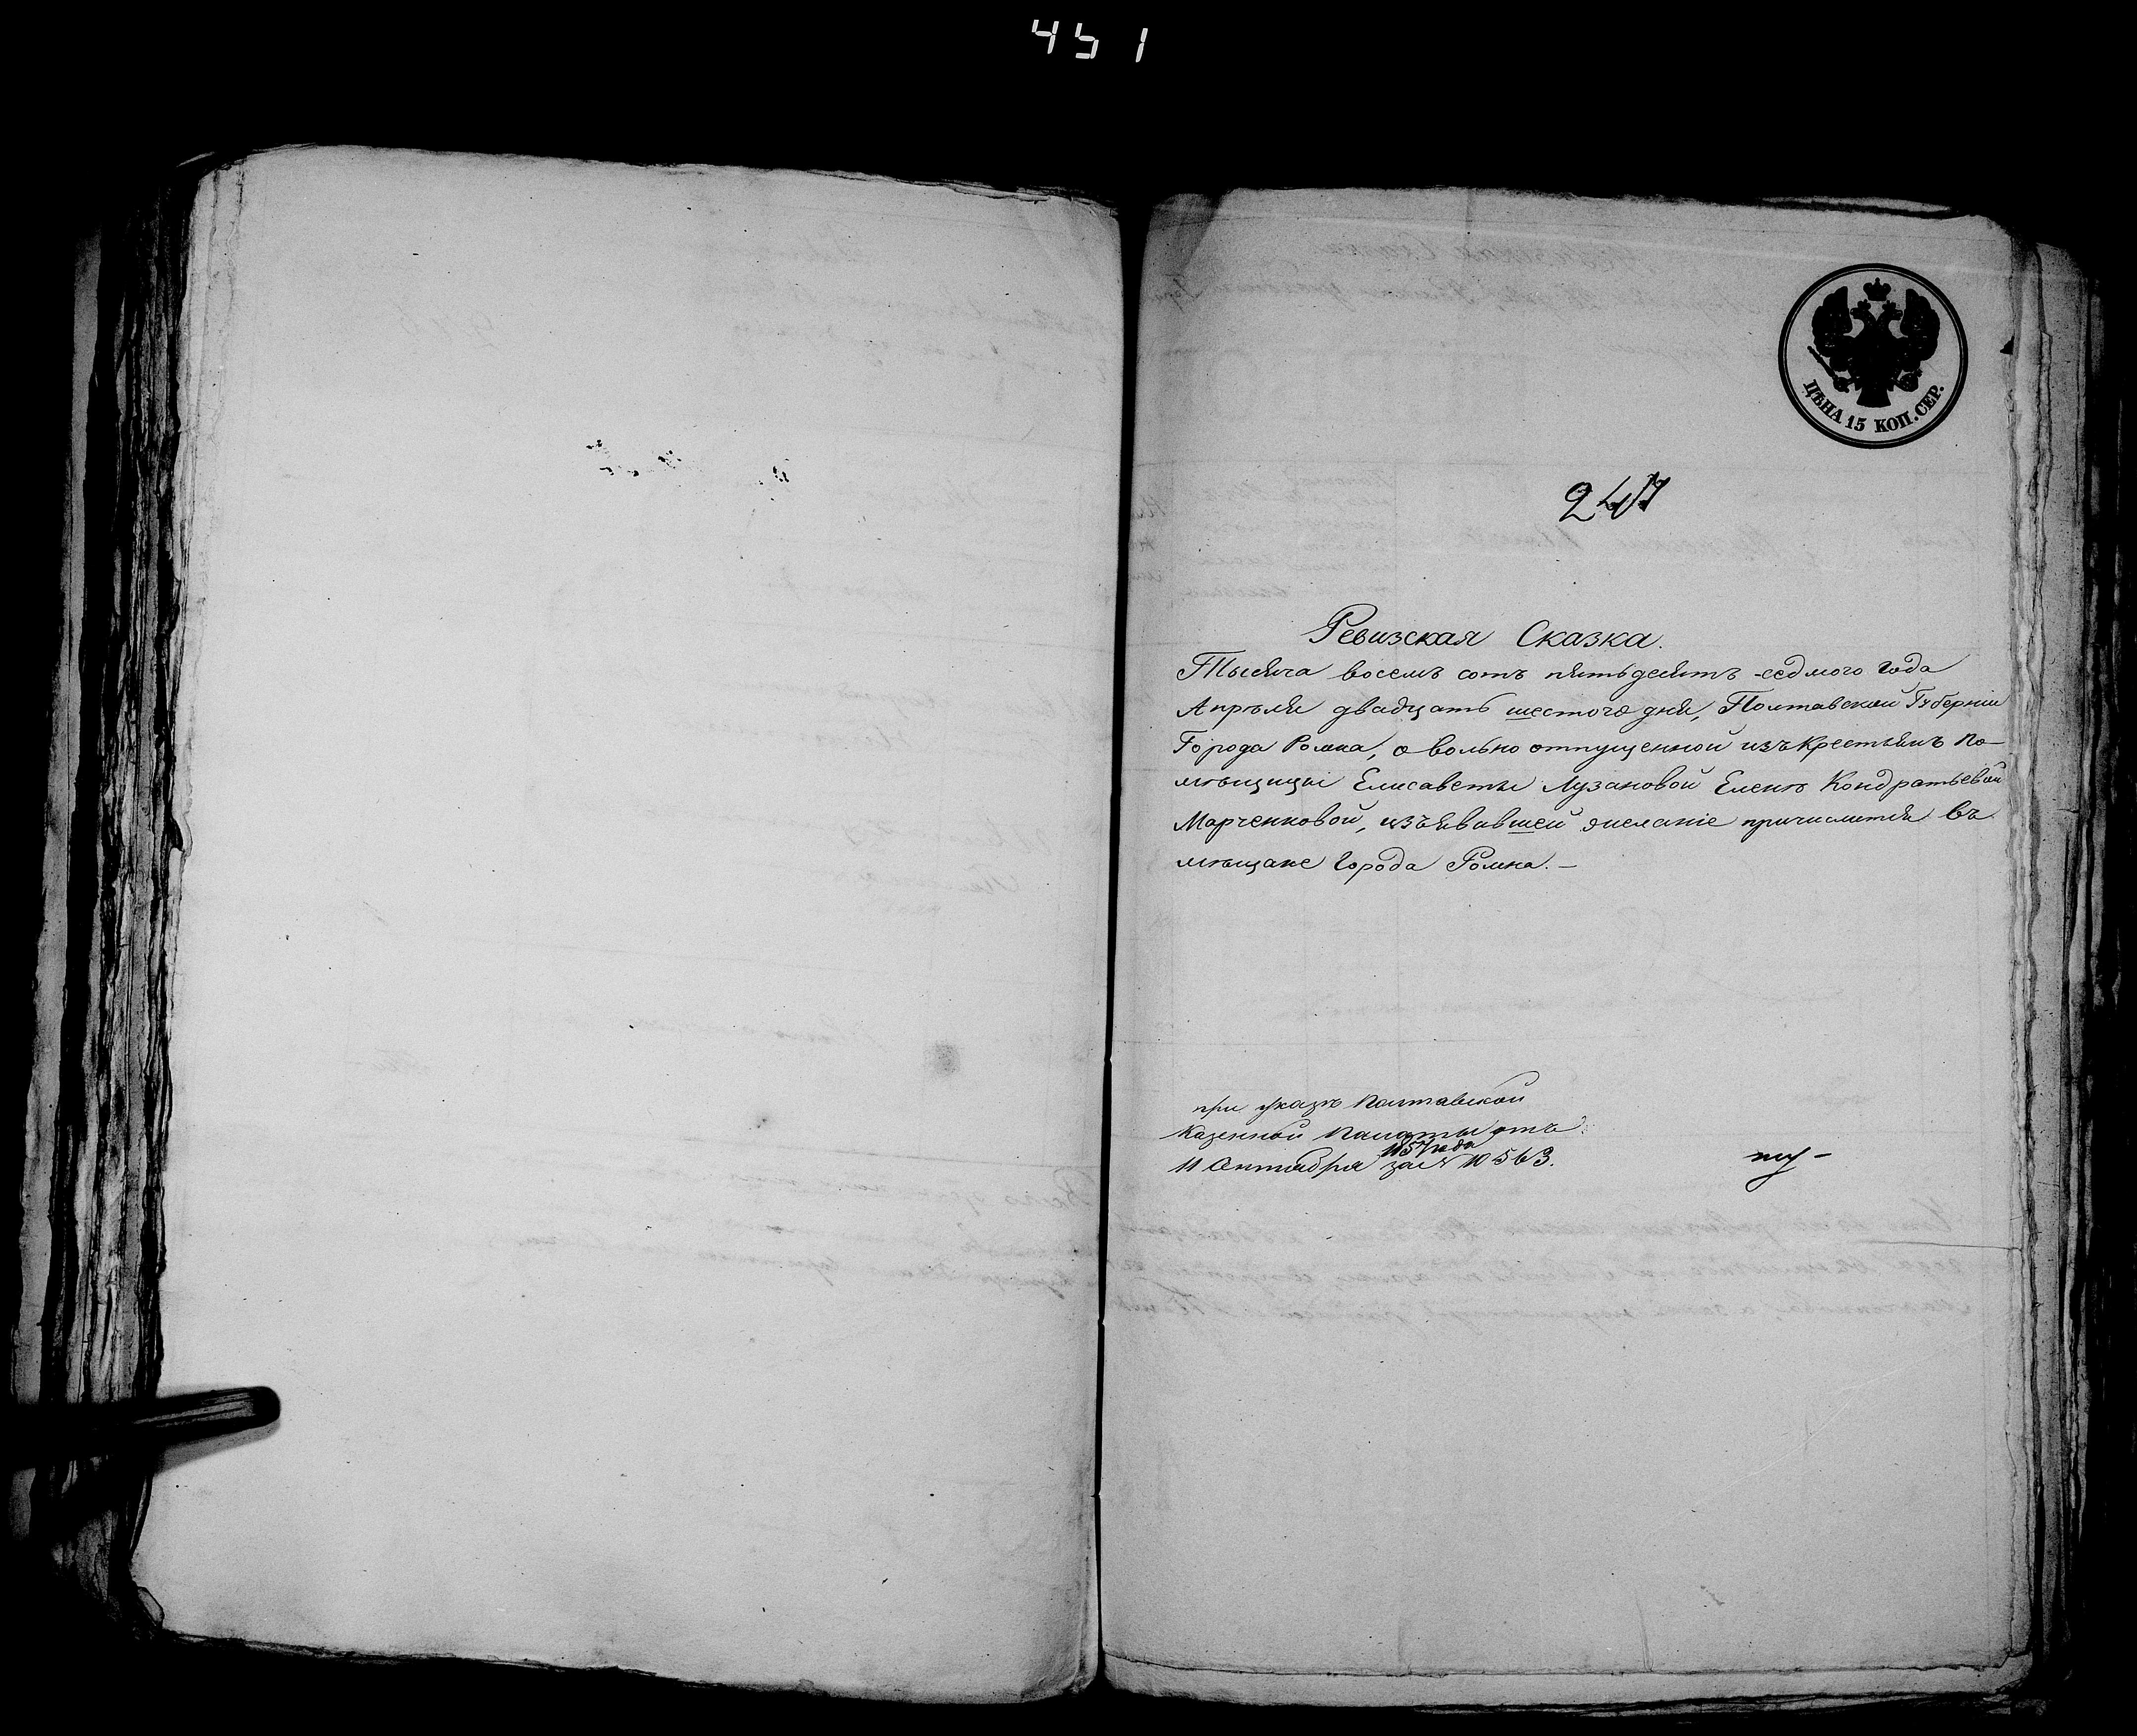 451
ЦѢНА 15 КОП. СЕР.
247
Ревизская Сказка.
Тысяча восемь сотъ пятьдесятъ седмого года
Апрѣля двадцать шестого дня, Полтавской Губерніи
Города Ромна, о вольно отпущенной изъ крестьянъ по-
мѣщицы Елисаветы Лузановой Еленѣ Кондратьевой
Марченковой, изъявившей желаніе причислится въ
мѣщане города Ромна.—
при указѣ Полтавской
Казенной Палаты отъ
11 Октября 1857 года за № 10563.